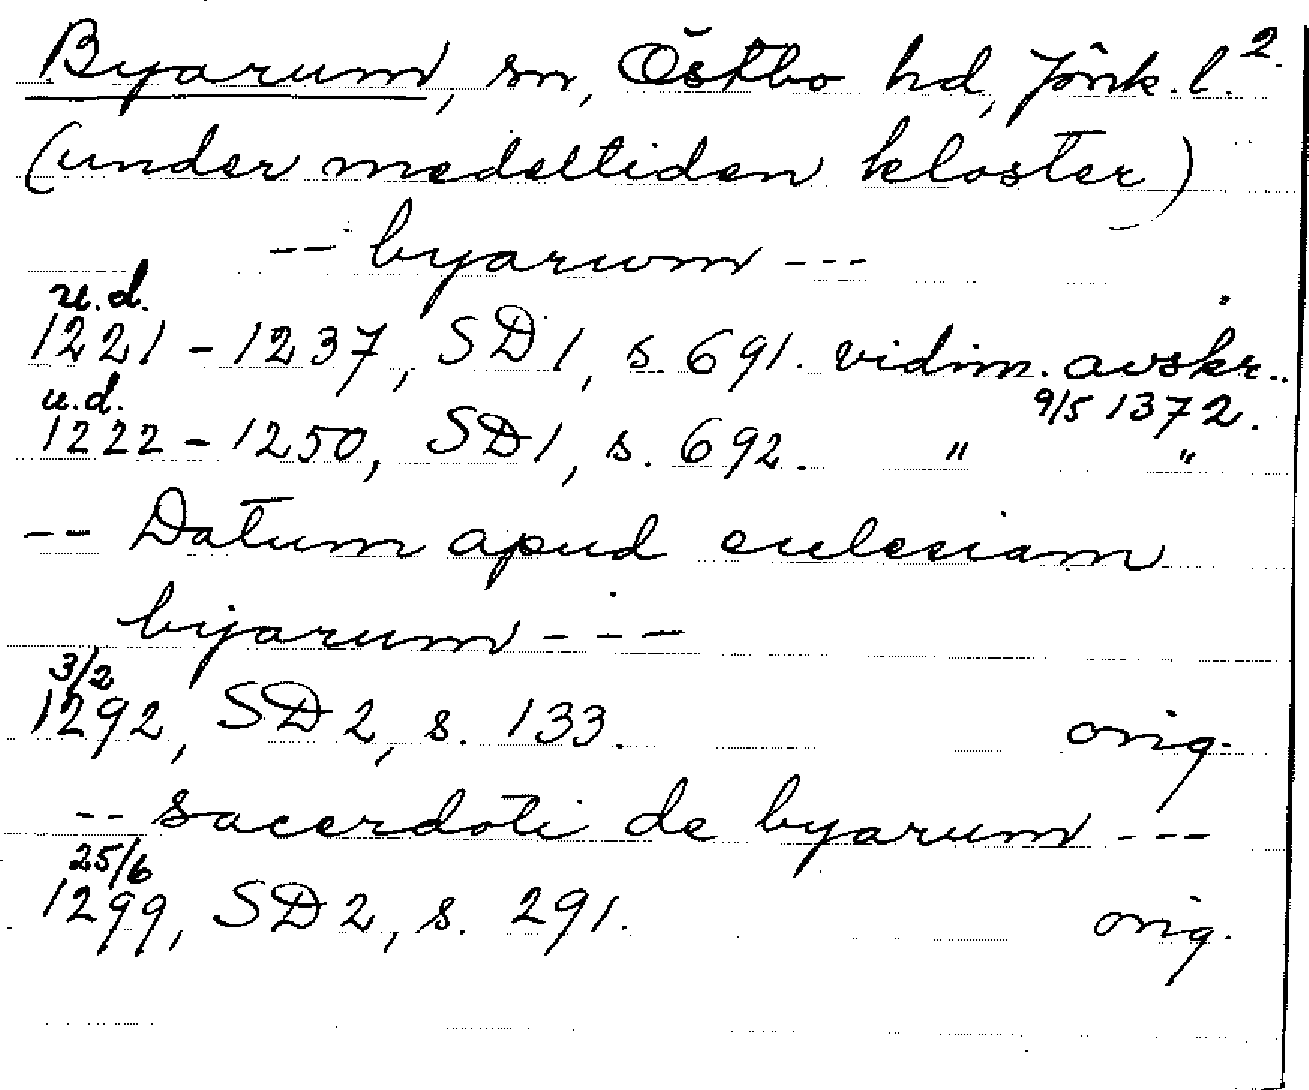 Byarum, sn, Östbo hd, Jönk. l. 2.
(under medeltiden kloster)
-- byarum ---
u.d.
1221 - 1237, SD 1, s. 691. vidim. avskr.
9/5 1372.
u.d.
1222 - 1250, SD 1, s. 692. " "
-- Datum apud ecclesiam
bijarum ---
3/2
1292, SD 2, s. 133. orig.
-- sacerdoti de byarum ---
25/6
1299, SD 2, s. 291. orig.